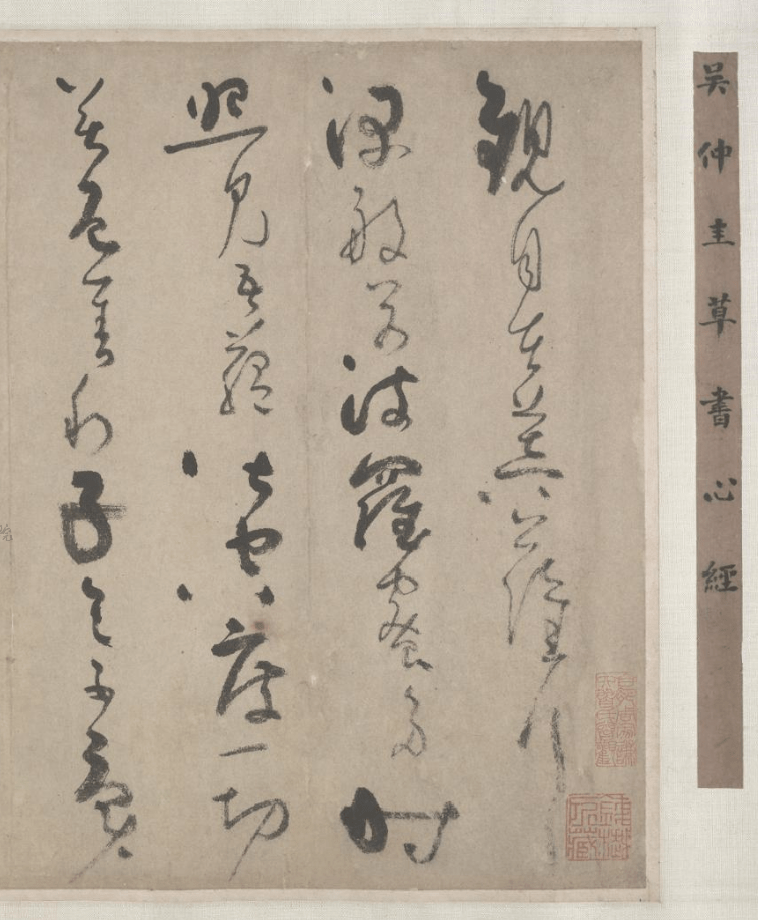 吴仲圭草書心經
觀自在菩薩行
深般若波羅蜜多時
照見五蘊皆空度一切
苦厄舍利子色不異